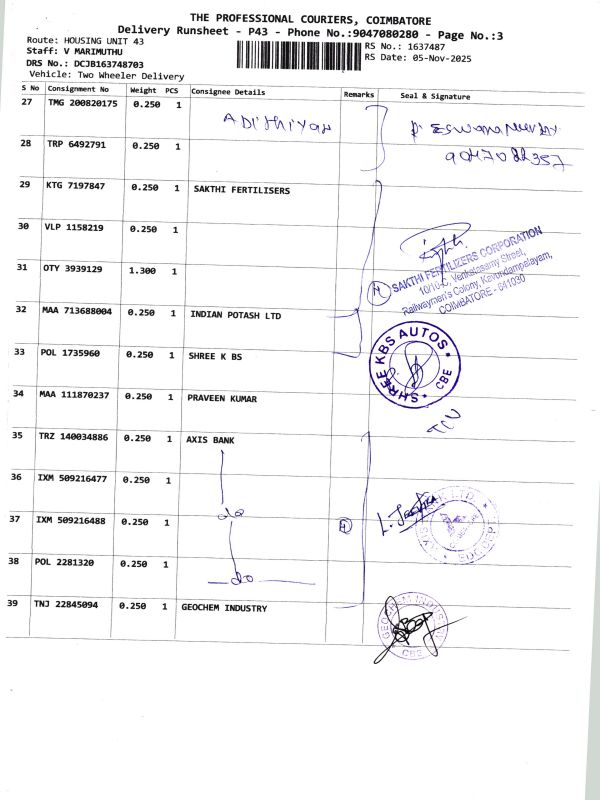 THE PROFESSIONAL COURIERS, COIMBATORE
Delivery Runsheet - P43 - Phone No.:9047080280 - Page No.:3
Route: HOUSING UNIT 43
Staff: V MARIMUTHU
DRS No.: DCJB163748703
Vehicle: Two Wheeler Delivery
RS No.: 1637487
RS Date: 05-Nov-2025
S No Consignment No Weight PCS Consignee Details Remarks Seal & Signature
27 TMG 200820175 0.250 1
ADithiyan
28 TRP 6492791 0.250 1
9047082357
29 KTG 7197847 0.250 1 SAKTHI FERTILISERS
30 VLP 1158219 0.250 1
SAKTHI FERTILIZERS CORPORATION
10/10-C, Venkatasamy Street,
Railwaymen's Colony, Kavundampalayam,
COIMBATORE - 641030
31 OTY 3939129 1.300 1
32 MAA 713688004 0.250 1 INDIAN POTASH LTD
33 POL 1735960 0.250 1 SHREE K BS
SHREE KBS AUTOS
CBE
34 MAA 111870237 0.250 1 PRAVEEN KUMAR
35 TRZ 140034886 0.250 1 AXIS BANK
36 IXM 509216477 0.250 1
do
37 IXM 509216488 0.250 1
38 POL 2281320 0.250 1
do
39 TNJ 22845094 0.250 1 GEOCHEM INDUSTRY
GEOCHEM INDUSTRY
CBE